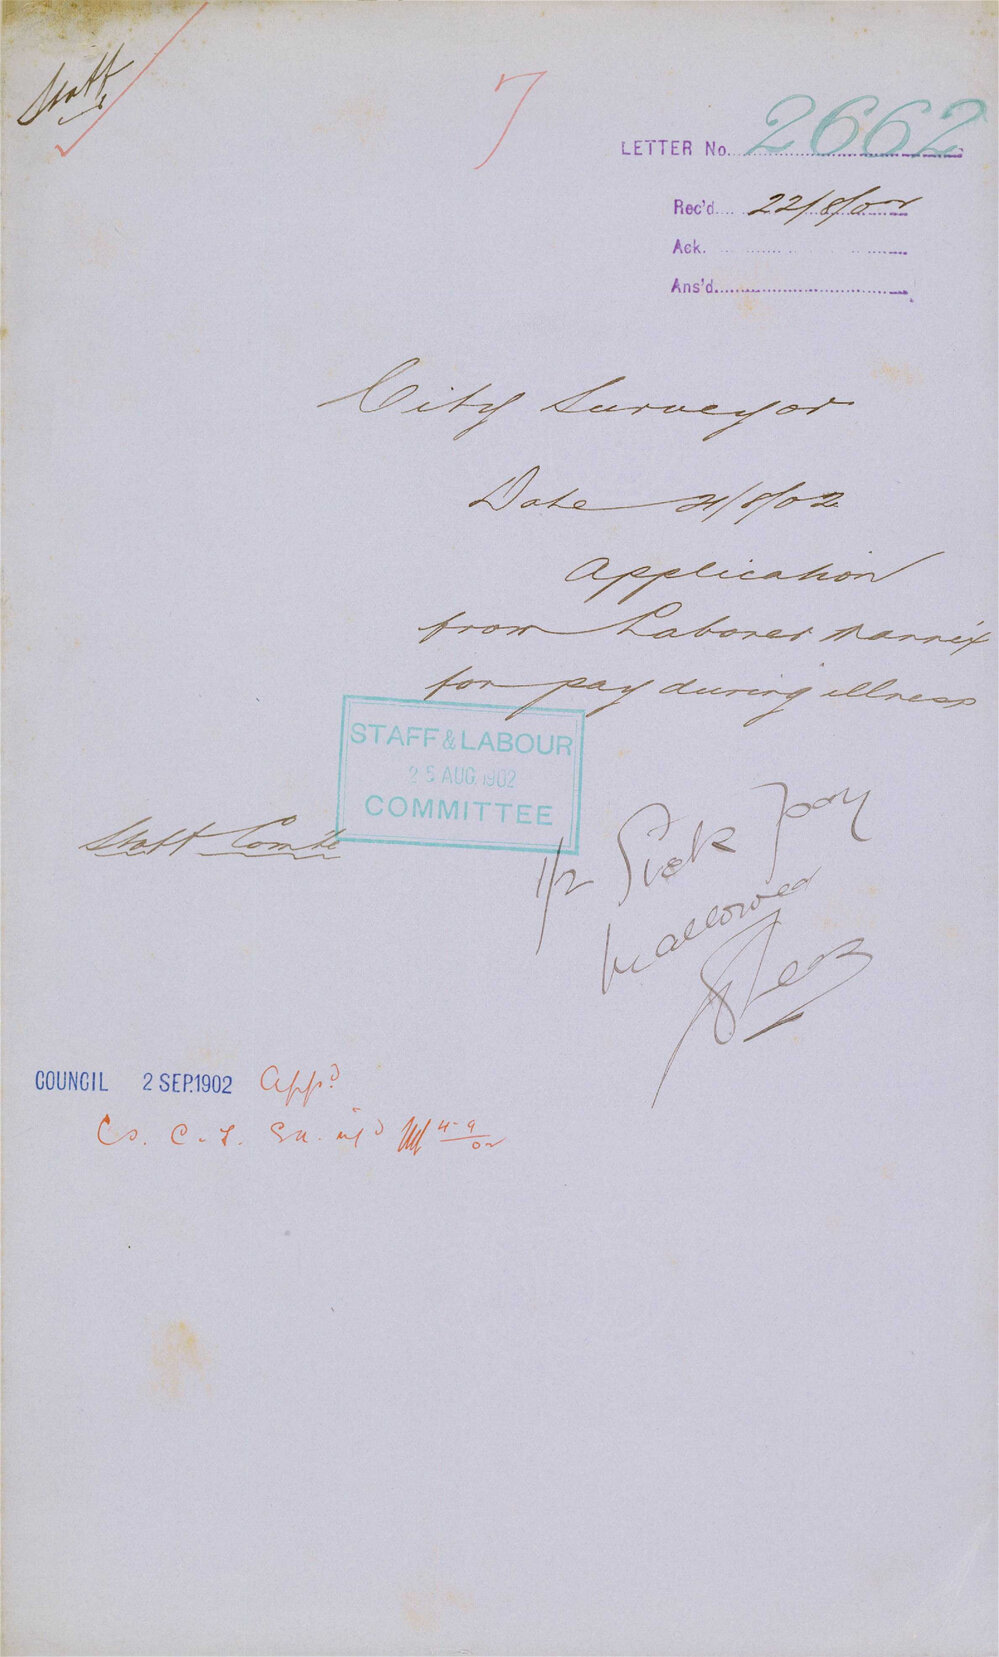 Staff
7
LETTER No. 2662
Rec'd 22/8/02
Ack.
Ans'd
City Surveyor
Date 21/8/02
Application
from Laborer Mannix
for pay during illness
STAFF & LABOUR
25 AUG. 1902
COMMITTEE
Staff Comtee
1/2 Sick pay
be allowed
COUNCIL 2 SEP. 1902 Appd
C. S. infd 4-9/02